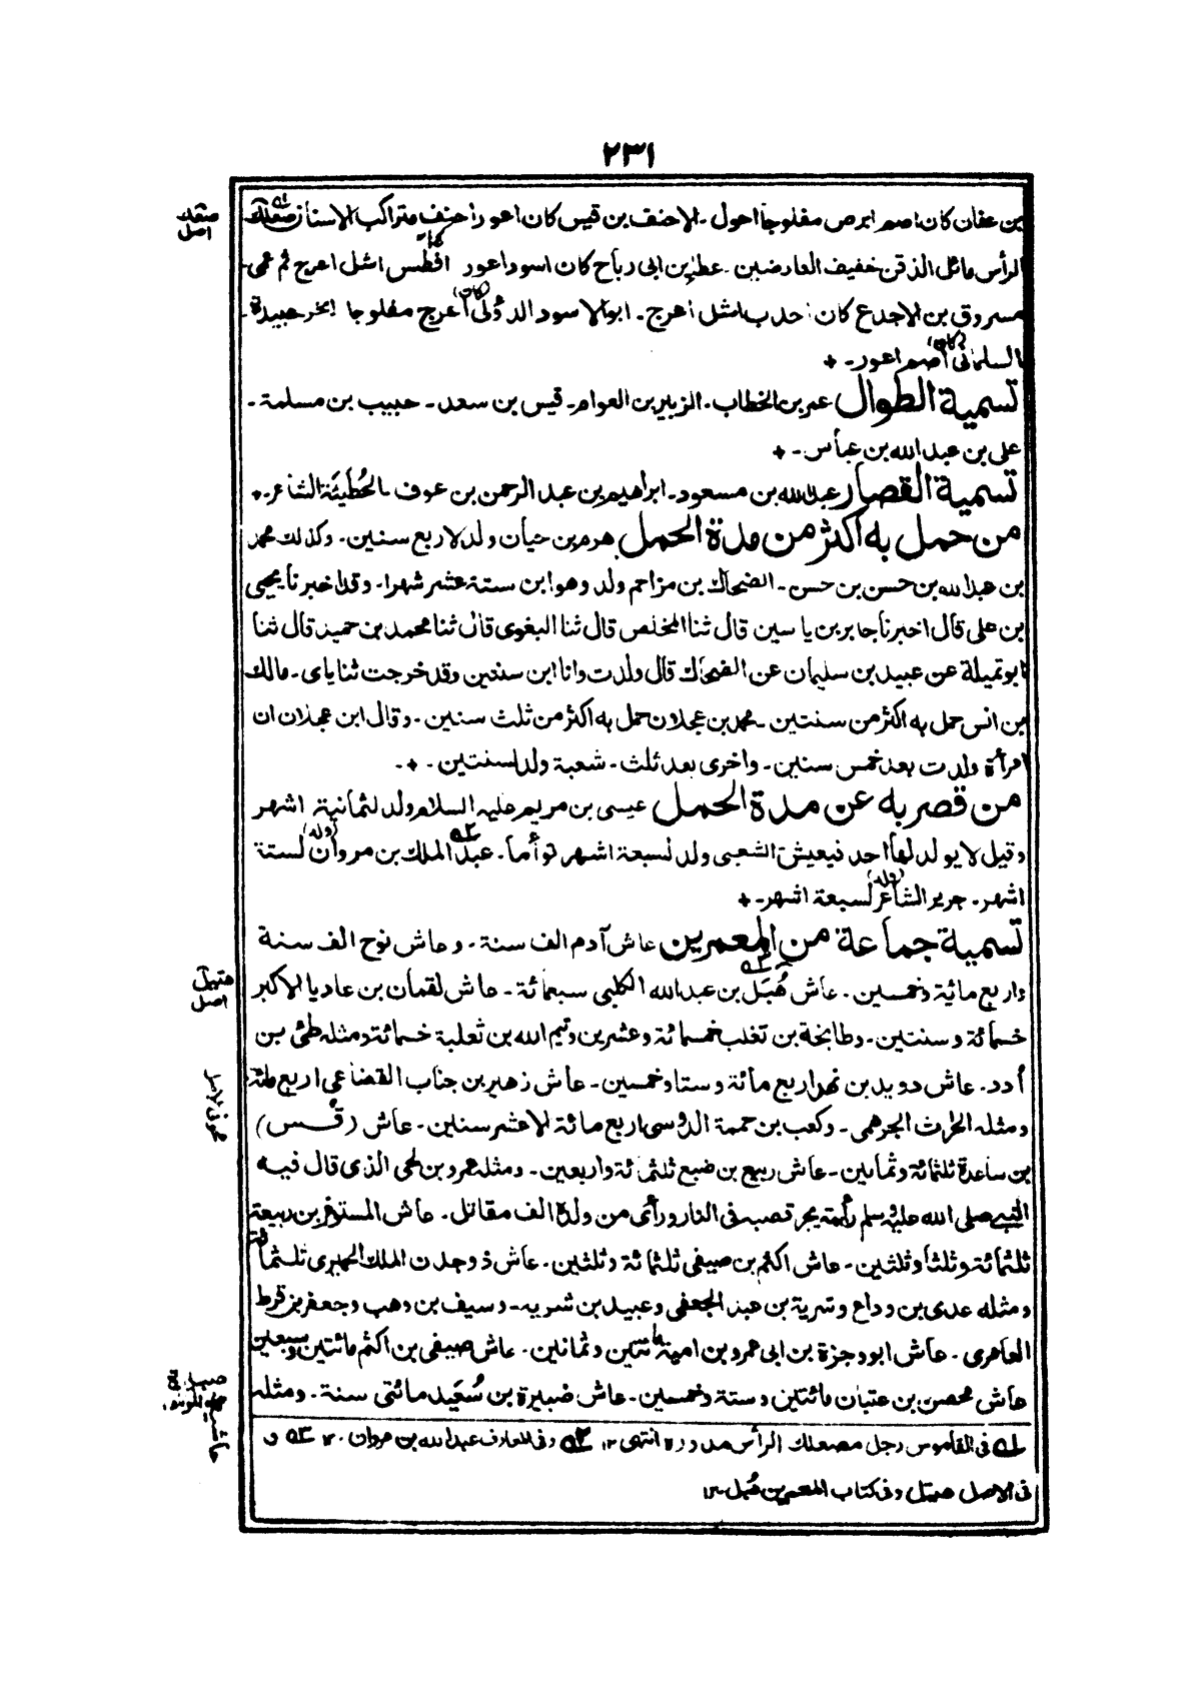 ٢٣١
بن عفان كان اصم ابرص مفلوجا احول - الاحنف بن قيس كان اعور احنف متراكب الاسنان صعلك
صتعك
اصل
الرأس مائل الذقن خفيف العارضين - عطاء بن ابى رباح كان اسود اعور افطس اشل اعرج ثم عمى -
مسروق بن الاجدع كان احدب اشل اعرج - ابو الاسود الدؤلى (كان) اعرج مفلوجا ابخر عبيدة
السلمانى (كان) اصم اعور - ٭
تسمية الطوال عمر بن الخطاب - الزبير بن العوام - قيس بن سعد - حبيب بن مسلمة -
على بن عبد الله بن عباس - ٭
تسمية القصار عبد الله بن مسعود - ابراهيم بن عبد الرحمن بن عوف - الحُطَيئَة الشاعر - ٭
من حمل به اكثر من مدة الحمل هرم بن حيان ولد لاربع سنين - وكذلك محمد
بن عبد الله بن حسن بن حسن - الضحاك بن مزاحم ولد وهو ابن ستة عشر شهرا - وقد اخبرنا يحيى
بن على قال اخبرنا جابر بن ياسين قال ثنا المخلص قال ثنا البغوى قال ثنا محمد بن حميد قال ثنا
ابو تميلة عن عبيد بن سليمان عن الضحاك قال ولدت وانا ابن سنتين وقد خرجت ثناياى - مالك
بن انس حمل به اكثر من سنتين - محمد بن عجلان حمل به اكثر من ثلث سنين - وقال ابن عجلان ان
امرأة ولدت بعد خمس سنين - واخرى بعد ثلث - شعبة ولد لسنتين - ٭ -
من قصر به عن مدة الحمل عيسى بن مريم عليه السلام ولد لثمانية اشهر
وقيل لا يولد لها احد فيعيش الشعبى ولد لسبعة اشهر توأما - عبد الملك بن مروان (ولد) لستة
اشهر - جرير الشاعر (ولد) لسبعة اشهر - ٭
تسمية جماعة من المعمرين عاش آدم الف سنة - وعاش نوح الف سنة
واربع مائة وخمسين - عاش هُبَل بن عبد الله الكلبى سبعمائة - عاش لقمان بن عاديا الاكبر
هتهل
اصل
خمسائة وسنتين - وطابخة بن تغلب خمسمائة وعشرين وتيم الله بن ثعلبة خمسائة ومثله طئ بن
أدد - عاش دويد بن نهد اربع مائة وستا وخمسين - عاش زهير بن جناب القضاعى اربع مائة
ومثله الحرث الجرهمى - وكعب بن حممة الدوسى اربع مائة الا عشر سنين - عاش (قُس)
بن ساعدة ثلثمائة وثمانين - عاش ربيع بن ضبع ثلثمائة واربعين - ومثله عمرو بن لحى الذى قال فيه
النبى صلى الله عليه وسلم رأيته يجر قصبه فى النار ورأى من ولده الف مقاتل - عاش المستوغر بن ربيعة
ثلثمائة وثلثا وثلثين - عاش اكثم بن صيفى ثلثمائة وثلثين - عاش ذو جدن الملك الحميرى ثلثمائة
ومثله عدى بن وداع وشرية بن عبد الجعفى وعبيد بن شريه - وسيف بن وهب وجعفر بن قرط
العامرى - عاش ابو وجزة بن ابى عمرو بن امية مائتين وثمانين - عاش صيفى بن اكثم مائتين وسبعين
عاش محصن بن عتبان مائتين وستة وخمسين - عاش ضبيرة بن سُعَيد مائتى سنة - ومثله
ا؎ فى القاموس رجل مصعلك الرأس مدوره انتهى ١٢ ٢؎ وفى المعارف عبد الله بن مروان ١٢ ٣؎ و
فى الاصل هتهل وفى كتاب المعمرين هُبل ١٢